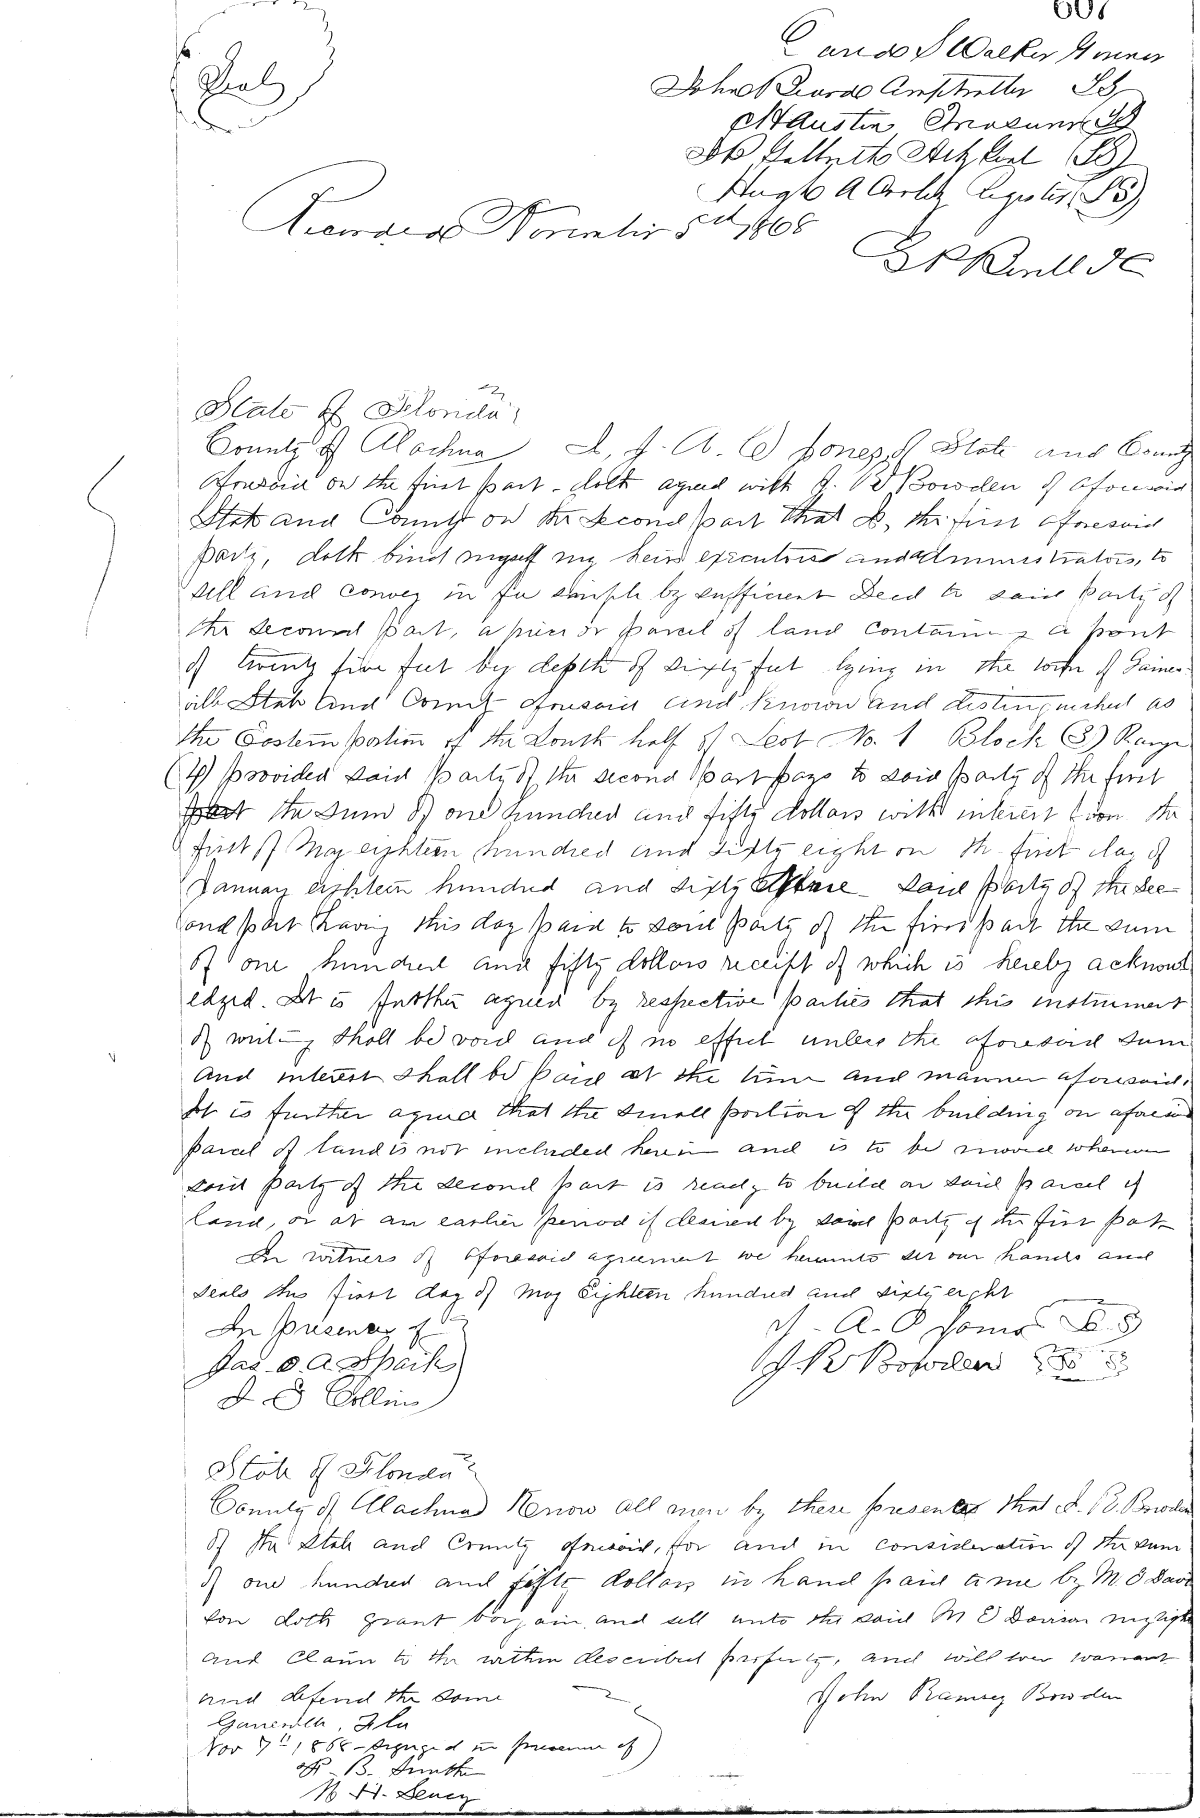 607
David S Walker Governor
John Beard Comptroller LS
C H Austin Treasurer LS
Atty Genl (LS)
Hugh A Corley Register (LS)
Seal
Recorded November 5th 1868
State of Florida
County of Alachua I, J. A. O Jones, of State and County
aforesaid on the first part - doth agred with J. R Bowden of aforesaid
State and County on the Second part that I, the first aforesaid
party, doth bind myself my heirs executors and administrators, to
sell and convey in fee simple by sufficient Deed to said party of
the second part, a piece or parcel of land containing a front
of twenty five feet by depth of sixty feet lying in the town of Gaines-
ville State and County aforesaid and known and distinguished as
the Eastern portion of the South half of Lot No. 1 Block (3) Range
(4) provided said party of the second part pays to said party of the first
part the sum of one hundred and fifty dollars with interest from the
first of May eighteen hundred and sixty eight on the first day of
January eighteen hundred and sixty nine said party of the sec-
ond part having this day paid to said party of the first part the sum
of one hundred and fifty dollars receipt of which is hereby acknowl
edged. It is further agreed by respective parties that this instrument
of writing shall be void and of no effect unless the aforesaid sum
and interest shall be paid at the time and manner aforesaid.
It is further agreed that the small portion of the building on aforesaid
parcel of land is not included herein and is to be moved whenever
said party of the second part is ready to build on said parcel of
land, or at an earlier period if desired by said party of the first part
In witness of aforesaid agreement we hereunto set our hands and
seals this first day of May Eighteen hundred and sixty eight
In presence of J. A. O Jones L.S
Jas. O. A. Spark
J. R Bowden L S
Collins
State of Florida
County of Alachua Know all men by these presents that J. R. Bowden
of the State and County aforesaid, for and in consideration of the sum
of one hundred and fifty dollars in hand paid to me by M. E Davi
son doth grant bargain and sell unto the said M E Davison my right
and claim to the within described property, and will ever warrant
and defend the same John Ramsey Bowden
Gainesville, Fla
Nov 7th 1868 - Signed in presence of
B. Smith